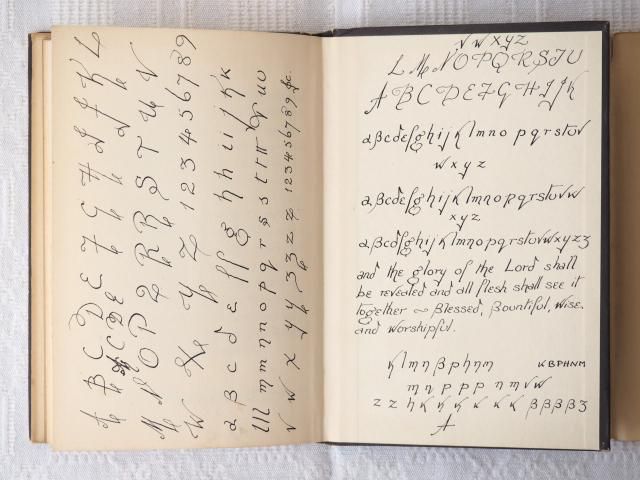 A B C D E F G H I J K L
A B C D E
M N O P Q R R S T U V
W X Y Z 1 2 3 4 5 6 7 8 9
a B c d e f f g h h i i j k k
m m n n o p q r s s t t u v
v w x y y z z 1 2 3 4 5 6 7 8 9 &c.
v w x y z
L M N O P Q R S T U
A B C D E F G H I J K
a B c d e f g h i j k l m n o p q r s t u v
w x y z
a B c d e f g h i j k l m n o p q r s t u v w
x y z
a B c d f g h i j k l m n o p q r s t u v w x y z z
and the glory of the Lord shall
be revealed and all flesh shall see it
together ~ Blessed, Bountiful, Wise.
and worshipful.
k l m n B p h n m K B P H N M
m n p p p n m v w
z z h k k k k k k k B B B B 3
A